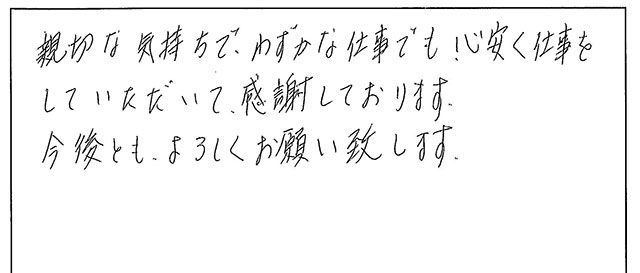 親切な気持ちで、わずかな仕事でも！心安く仕事を
していただいて、感謝しております。
今後とも、よろしくお願い致します。